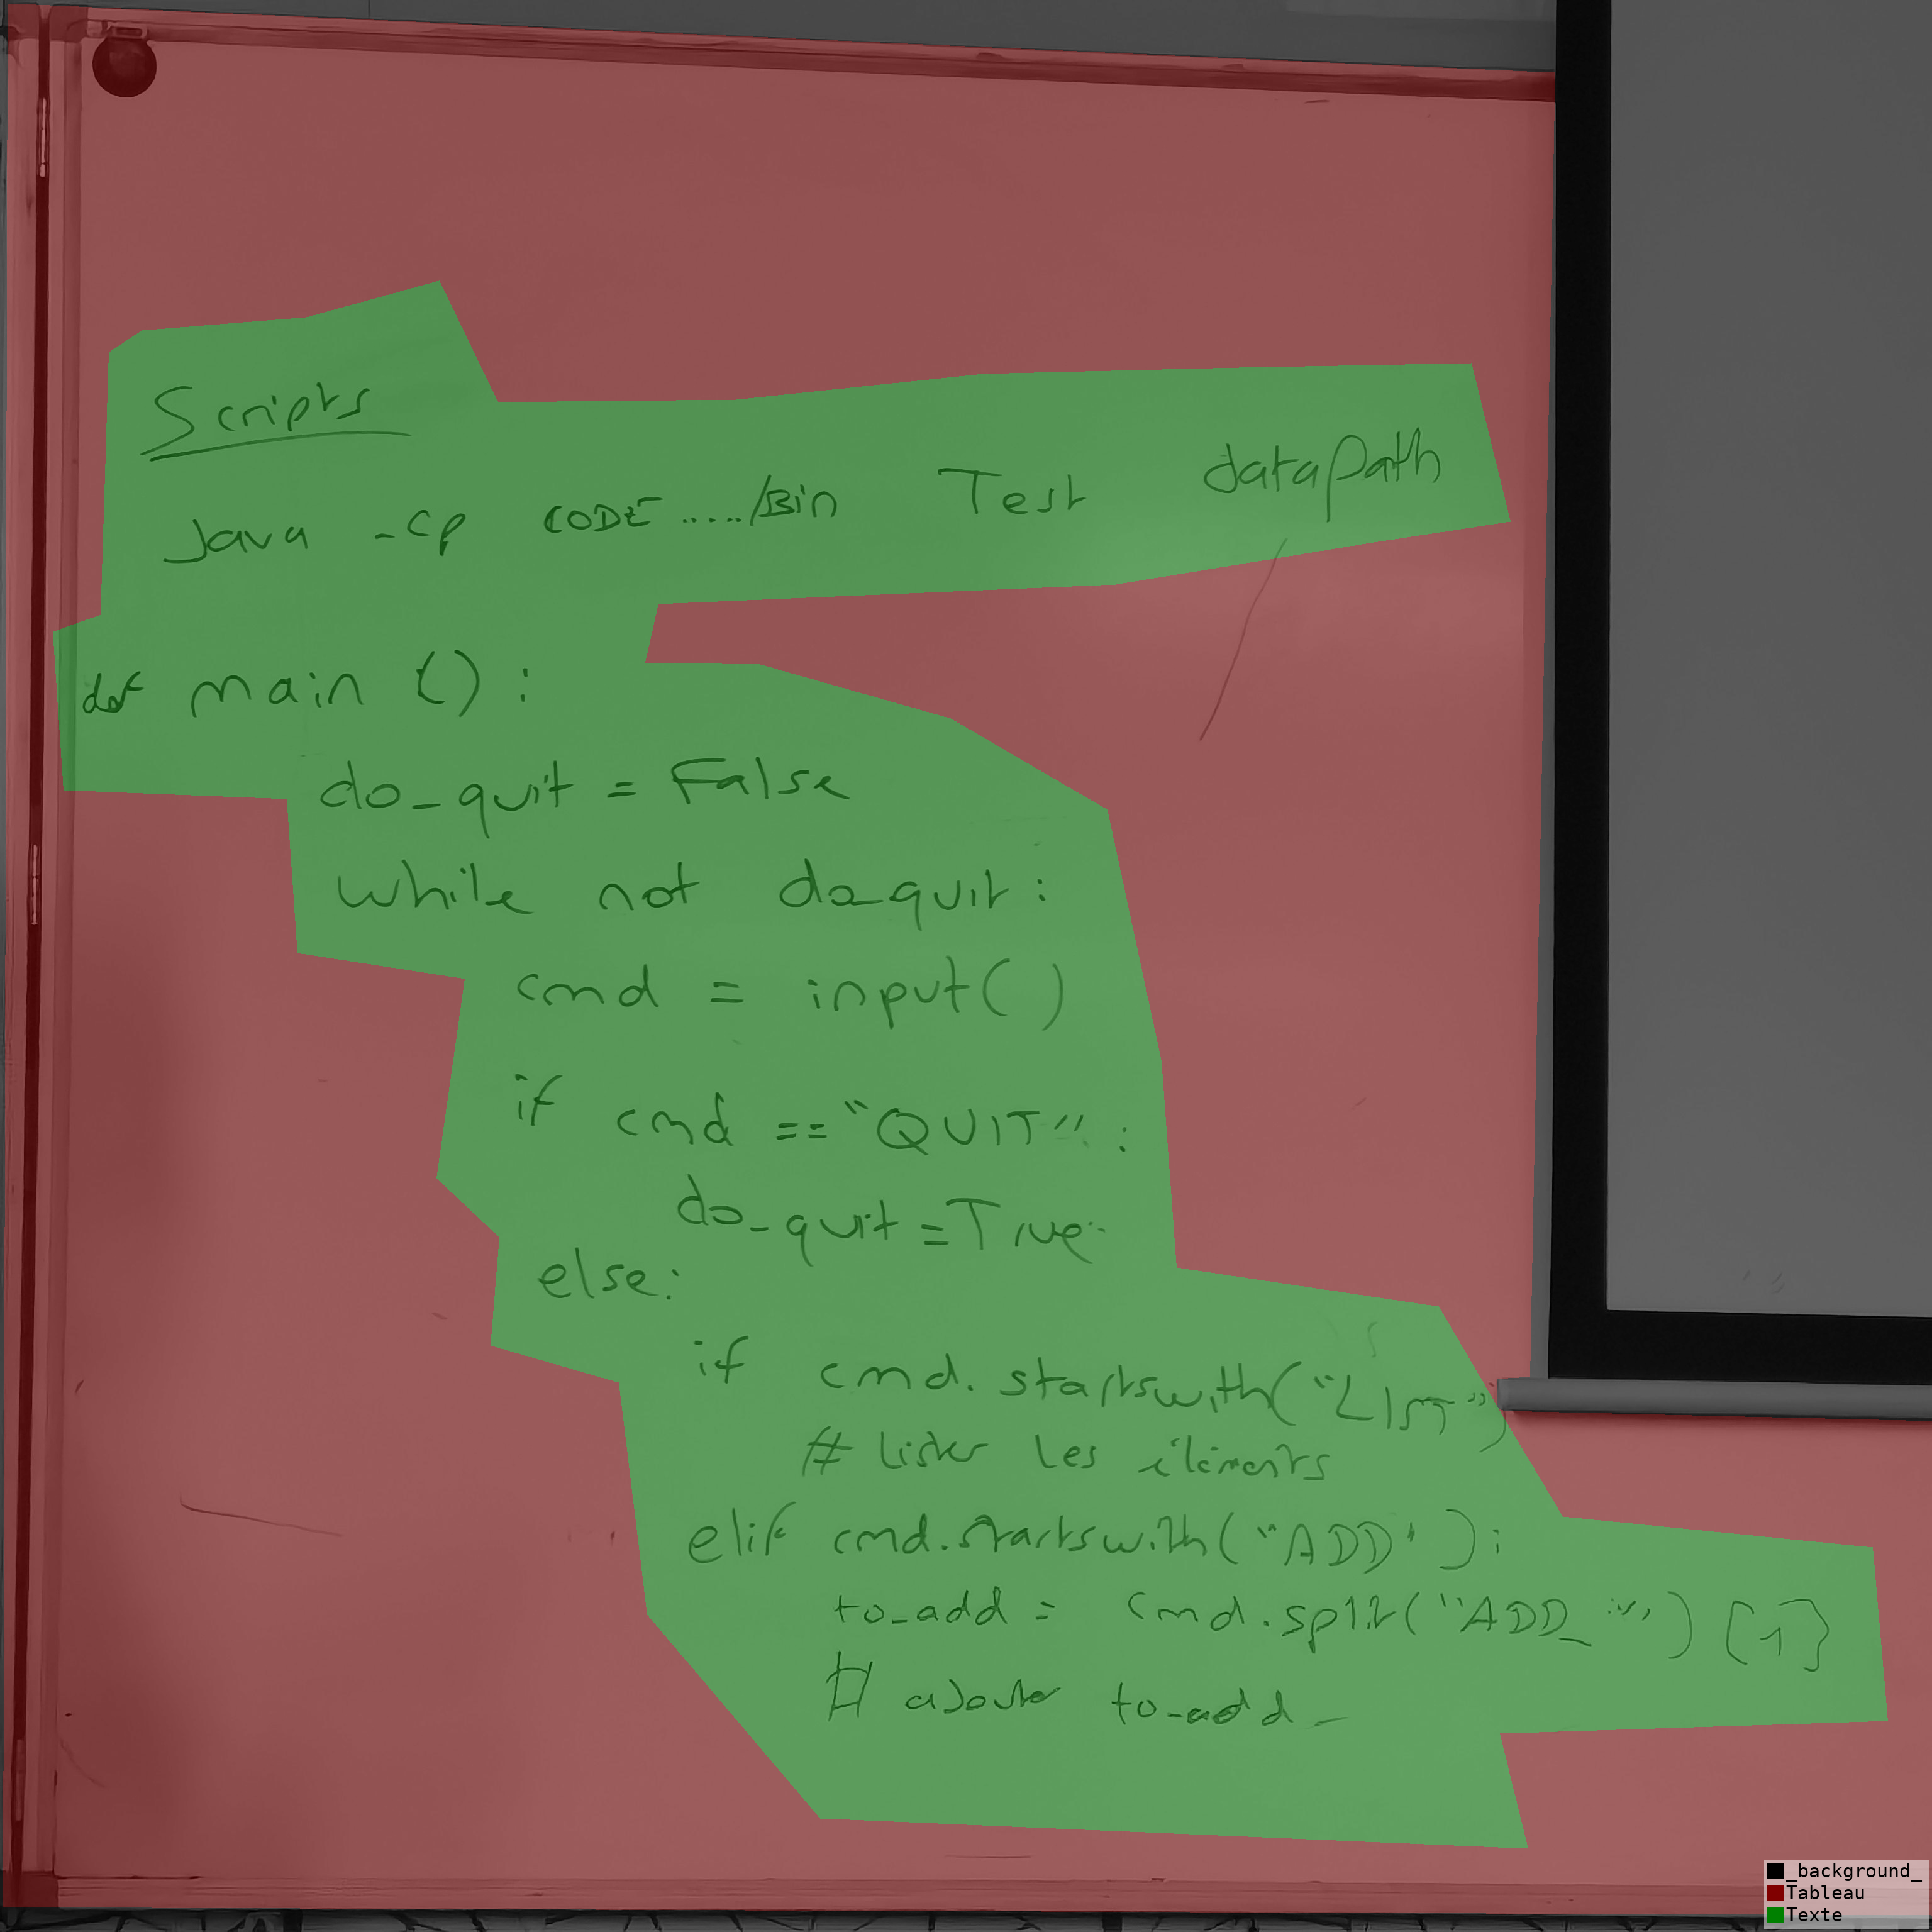 Scripts
Java -cp CODE...../Bin Test dataPath
def main ():
do_quit = False
while not do_quit:
cmd = input()
if cmd == "QUIT":
do_quit = True
else:
if cmd.startswith("LIST")
# Lister les éléments
elif cmd.startswith("ADD"):
to_add = cmd.split("ADD_")[1]
# ajouter to_add
_background_
Tableau
Texte